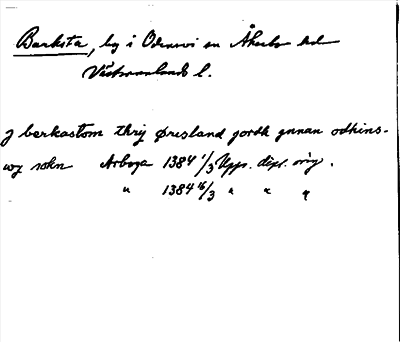 Barksta, by i Odensvi sn Åkerbo hd
Västmanlands l.
j berkastom thry øresland jordh ynnan odhins-
wy sokn Arboga 1384 1/3 Upps. dipl. orig.
" 1384 16/3 " " "